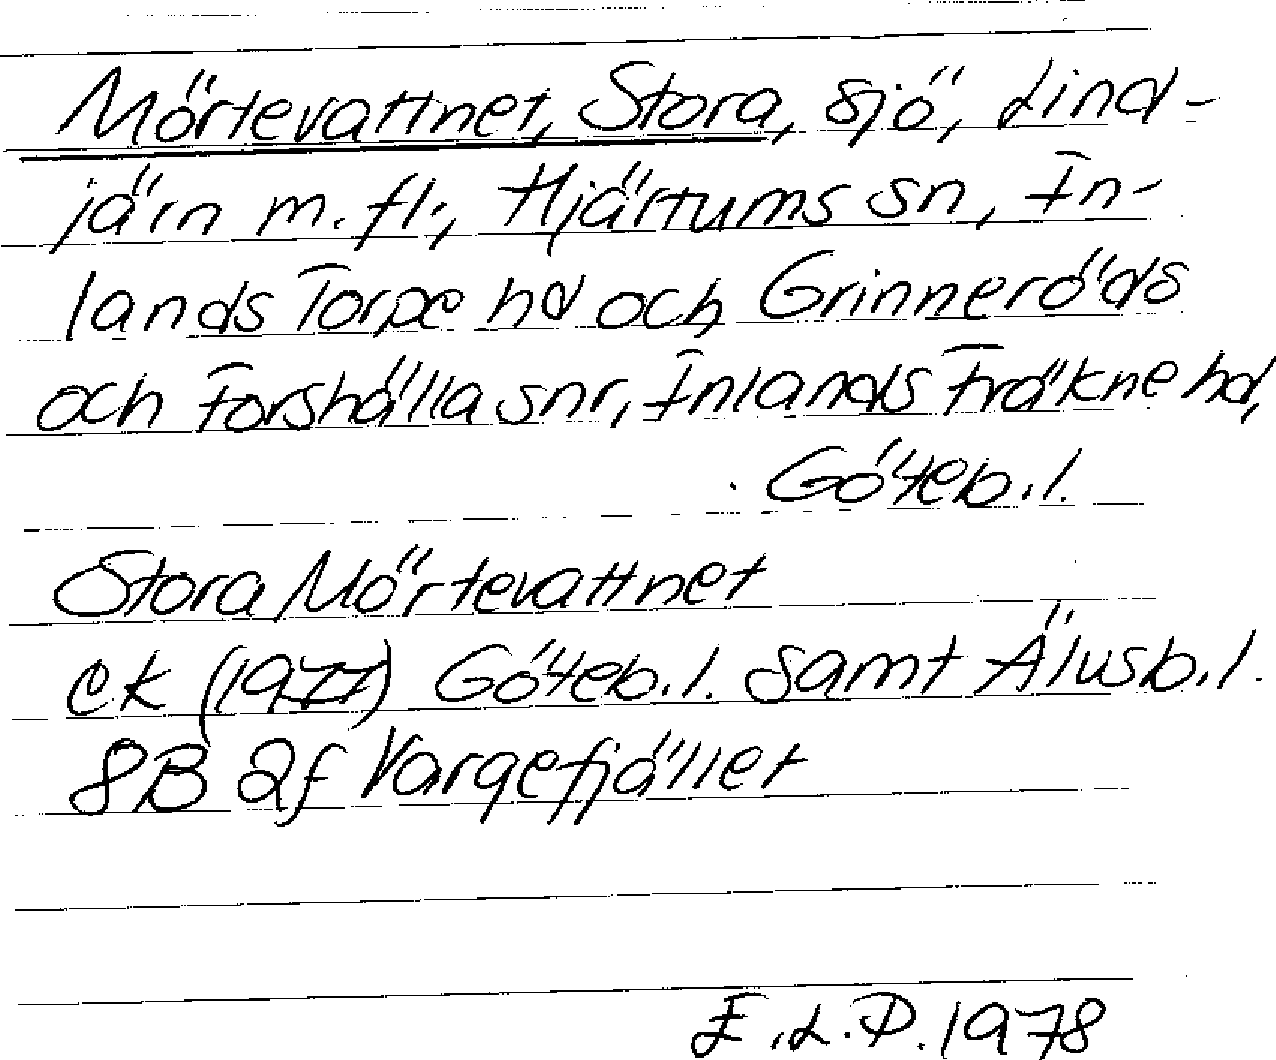 Mörtevattnet, Stora, sjö, Lind-
järn m.fl., Hjärtums sn, In-
lands Torpe hd och Grinneröds
och Forshälla snr, Inlands Fräkne hd,
Göteb.l.
Stora Mörtevattnet
e.k (1977) Göteb.l. samt Älvsb.l.
8B 2f Vargefjället
E.L.P. 1978